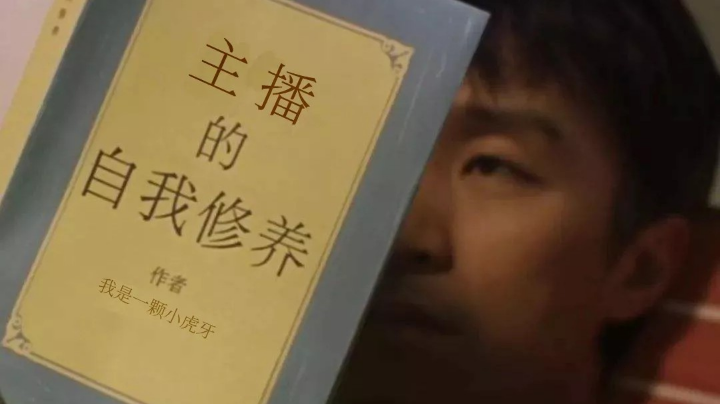 主播
的
自我修养
作者
我是一颗小虎牙